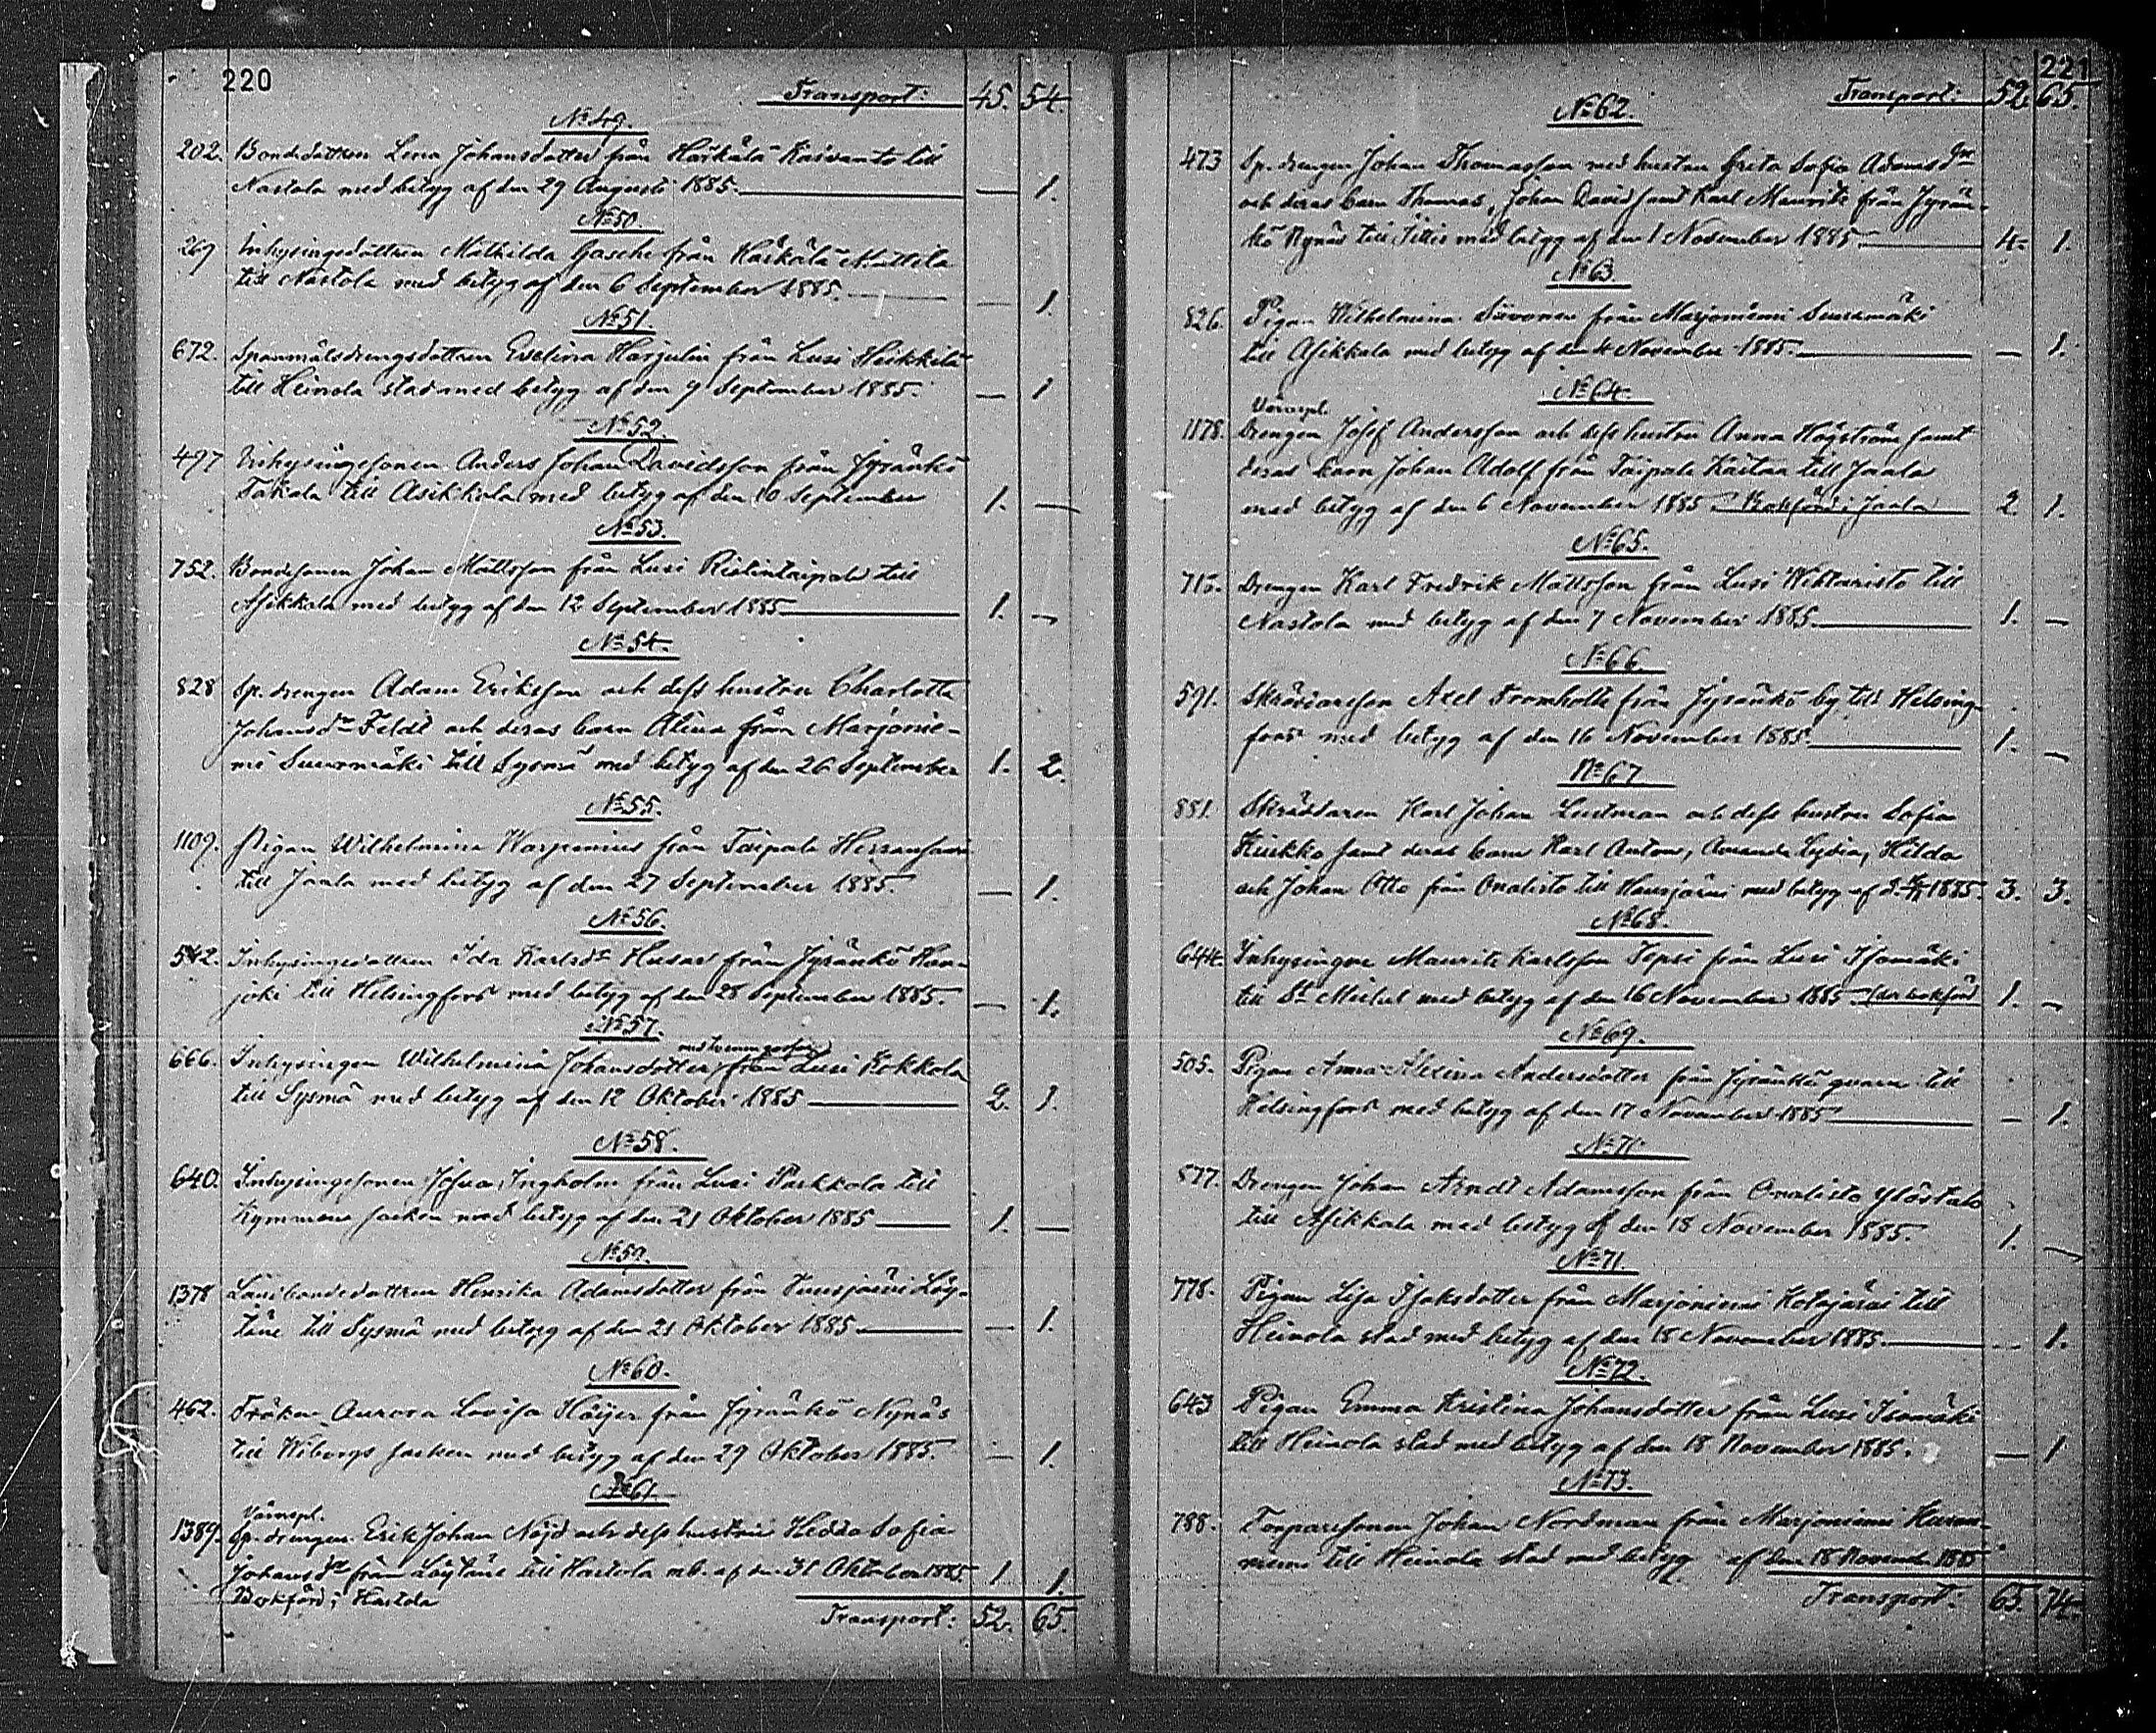 220
Transport: 45. 54.
No 49.
202. Bondedottren Lena Johansdotter från Härkälä Kaivanto till
Nastola med betyg af den 29 Augusti 1885. — 1.
No 50.
269 Inhysingedottren Mathilda Gasche från Härkälä Mattila
till Nastola med betyg af den 6 September 1885. — 1.
No 51.
672. Spanmålsdrengsdottren Evelina Harjulin från Lusi Heikkilä
till Heinola stad med betyg af den 9 September 1885. — 1
No 52.
497 Inhysingesonen Anders Johan Davidsson från Jyränkö
Takala till Asikkala med betyg af den 10 September 1. —
No 53.
752. Bondesonen Johan Mattsson från Lusi Ristintaipale till
Asikkala med betyg af den 12 September 1885 1. —
No 54.
828 Sp. drengen Adam Eriksson och dess hustru Charlotta
Johansdr Feldt och deras barn Alina från Marjonie-
mi Suurmäki till Sysmä med betyg af den 26 September 1. 2.
No 55.
1109. Pigan Wilhelmina Warpenius från Taipale Herransaari
till Jaala med betyg af den 27 September 1885. — 1.
No 56.
542. Inhysingedottren Ida Karlsdr Husar från Jyränkö
joki till Helsingfors med betyg af den 28 September 1885. — 1.
No 57.
666. Inhysingen Wilhelmina Johansdotter från Lusi Kokkola
till Sysmä med betyg af den 12 Oktober 1885 2. 1.
No 58.
640. Inhysingesonen Josua Ingholm från Lusi Parkkola till
Kymmene socken med betyg af den 21 Oktober 1885 1. —
No 59.
1378 Landbondedottren Henrika Adamsdotter från Kuusjärvi Löy-
täne till Sysmä med betyg af den 21 Oktober 1885 — 1.
No 60.
462. Fröken Aurora Lovisa Höijer från Jyränkö Nynäs
till Wiborgs socken med betyg af den 29 Oktober 1885. — 1.
No 61.
Värnspl.
1389. Sp. drengen Erik Johan Nöjd och dess hustru Hedda Sofia
Johansdr från Löytäne till Hartola mb. af den 31 Oktober 1885 1. 1.
Bokförd i Hartola
Transport: 52. 65.
221
Transport: 52. 65.
No 62.
473 Sp. drengen Johan Thomasson med hustru Greta Sofia Adamsdr
och deras barn Thomas, Johan David samt Karl Mauritz från Jyrän-
kö Nynäs till Jittis med betyg af den 1 November 1885 4. 1.
No 63.
826. Pigan Wilhelmina Siivonen från Marjoniemi Suurmäki
till Asikkala med betyg af den 4 November 1885. — 1.
No 64.
Värnspl.
1178. Drengen Josef Andersson och dess hustru Anna Högström samt
deras barn Johan Adolf från Taipale Kaitaa till Jaala
med betyg af den 6 November 1885 Bokförd i Jaala 2 1.
No 65.
715. Drengen Karl Fredrik Mattsson från Lusi Wihtaristo till
Nastola med betyg af den 7 November 1885. 1. —
No 66.
591. Skräddarsson Axel Tromholtz från Jyränkö by till Helsing-
fors med betyg af den 16 November 1885. 1. —
No 67
881. Skräddaren Karl Johan Lustman och dess hustru Sofia
Kuikko samt deras barn Karl Anton, Amanda Lydia, Hilda
och Johan Otto från Onalisto till Hausjärvi med betyg af d. 1885. 3. 3.
No 68.
644. Inhysingen Mauritz Karlsson Sepri från Lusi Isomäki
till St Michel med betyg af den 16 November 1885 (der bokförd) 1. —
No 69.
505. Pigan Anna Alexina Andersdotter från Jyränkö qvarn till
Helsingfors med betyg af den 17 November 1885 — 1.
No 71
877. Drengen Johan Arndt Adamsson från Onalisto Ylöstalo
till Asikkala med betyg af den 18 November 1885. 1. —
No 71
778. Pigan Lisa Isaksdotter från Marjoniemi Kotojärvi till
Heinola stad med betyg af den 18 November 1885. — 1.
No 72.
643 Pigan Emma Kristina Johansdotter från Lusi Isomäki
till Heinola stad med betyg af den 18 November 1885. — 1.
No 73.
788. Torparesonen Johan Nordman från Marjoniemi
till Heinola stad med betyg af den 18 November 1885
Transport: 65. 74.